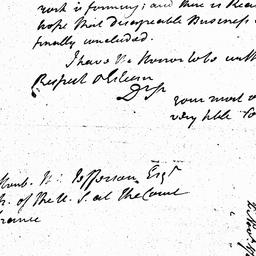 work is forming; and there is
hope that disagreeable Business
finally concluded.
I have the Honor to be with
Respect & Esteem
Dr Sir
your most
very hble
Honble. Th: Jefferson Esqr
of the U. S. at the Court
France